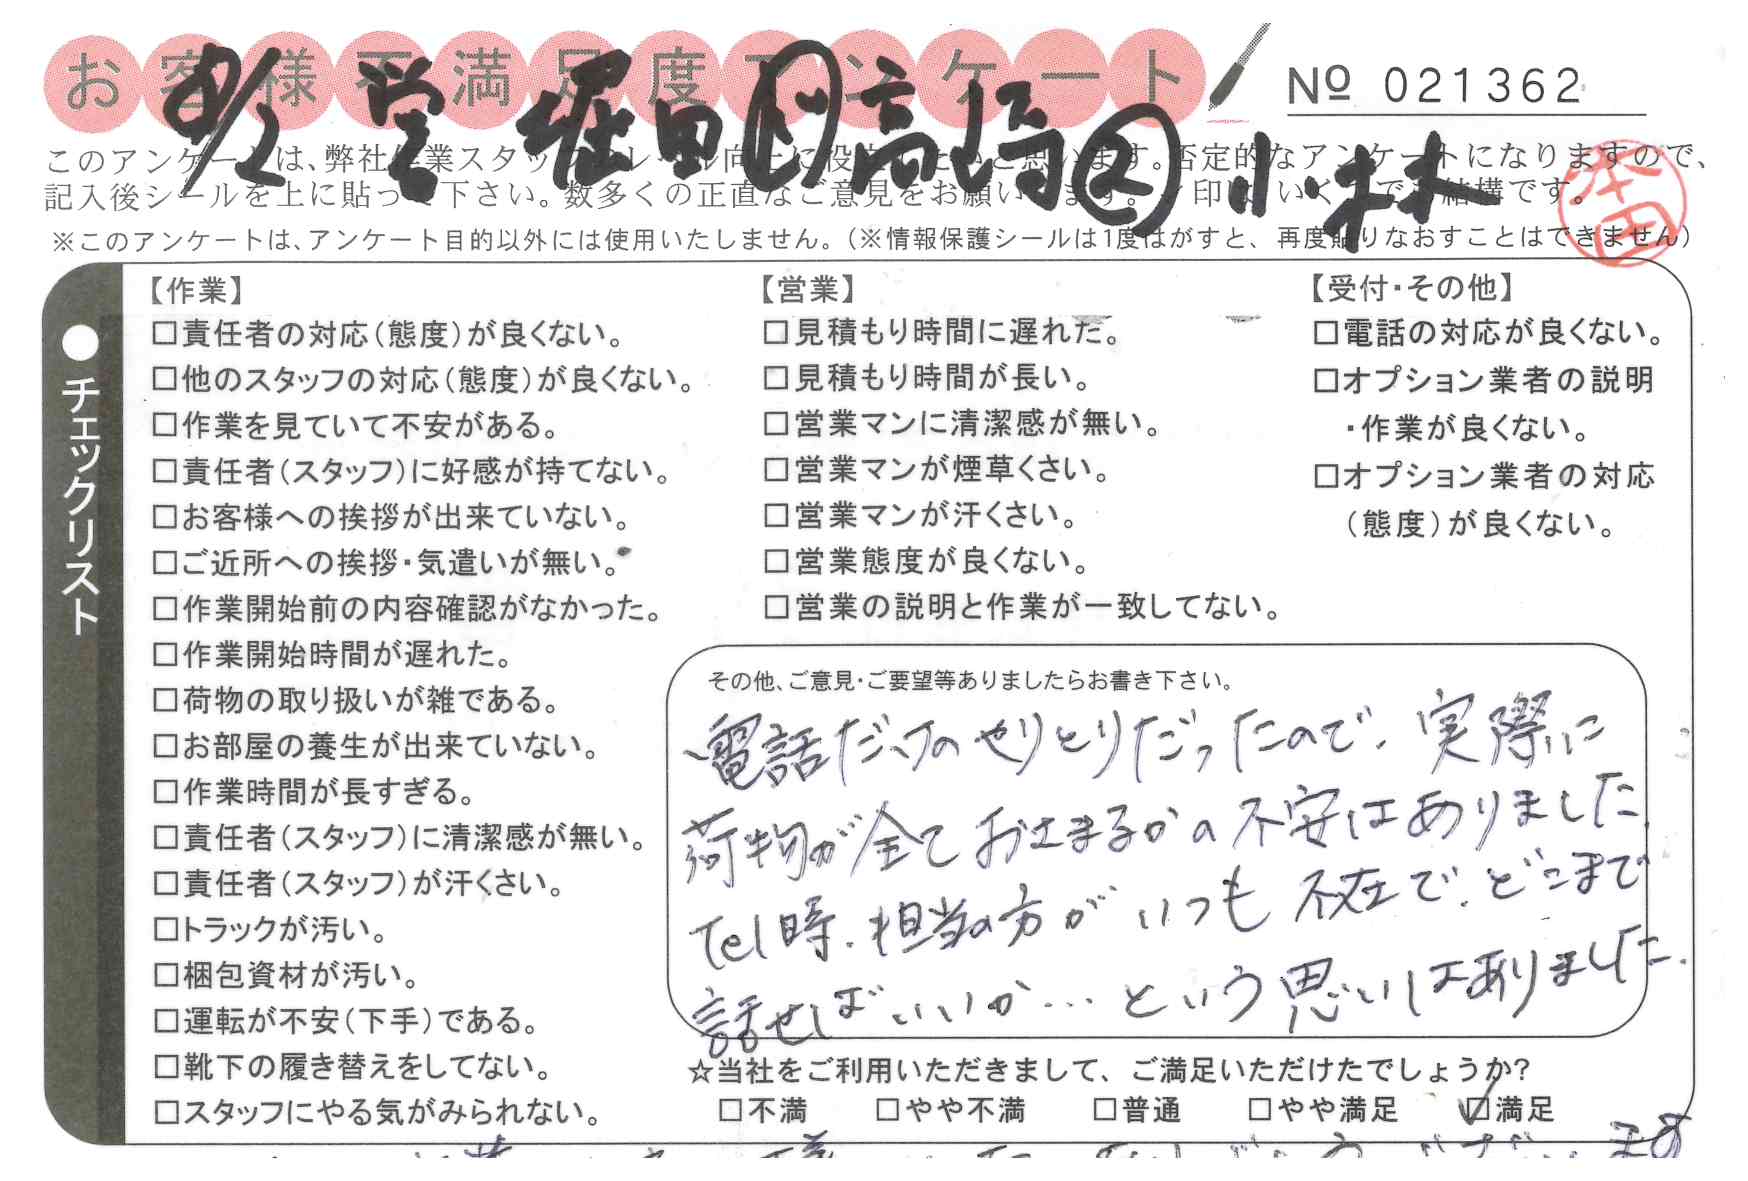 お客様不満足度アンケート
No 021362
営 堀田 高崎 小林
このアンケートは、弊社作業スタッフのレベル向上に役立てたいと思います。否定的なアンケートになりますので、
記入後シールを上に貼って下さい。数多くの正直なご意見をお願いします。レ印はいくつでも結構です。
本田
※このアンケートは、アンケート目的以外には使用いたしません。(※情報保護シールは1度はがすと、再度貼りなおすことはできません)
●チェックリスト
【作業】
□責任者の対応(態度)が良くない。
□他のスタッフの対応(態度)が良くない。
□作業を見ていて不安がある。
□責任者(スタッフ)に好感が持てない。
□お客様への挨拶が出来ていない。
□ご近所への挨拶・気遣いが無い。
□作業開始前の内容確認がなかった。
□作業開始時間が遅れた。
□荷物の取り扱いが雑である。
□お部屋の養生が出来ていない。
□作業時間が長すぎる。
□責任者(スタッフ)に清潔感が無い。
□責任者(スタッフ)が汗くさい。
□トラックが汚い。
□梱包資材が汚い。
□運転が不安(下手)である。
□靴下の履き替えをしてない。
□スタッフにやる気がみられない。
【営業】
□見積もり時間に遅れた。
□見積もり時間が長い。
□営業マンに清潔感が無い。
□営業マンが煙草くさい。
□営業マンが汗くさい。
□営業態度が良くない。
□営業の説明と作業が一致してない。
【受付・その他】
□電話の対応が良くない。
□オプション業者の説明
・作業が良くない。
□オプション業者の対応
(態度)が良くない。
その他、ご意見・ご要望等ありましたらお書き下さい。
電話だけのやりとりだったので、実際に
荷物が全ておさまるかの不安はありました。
Tel時、担当の方がいつも不在で、どこまで
話せばいいか…という思いはありました。
☆当社をご利用いただきまして、ご満足いただけたでしょうか?
□不満 □やや不満 □普通 □やや満足 ☑満足